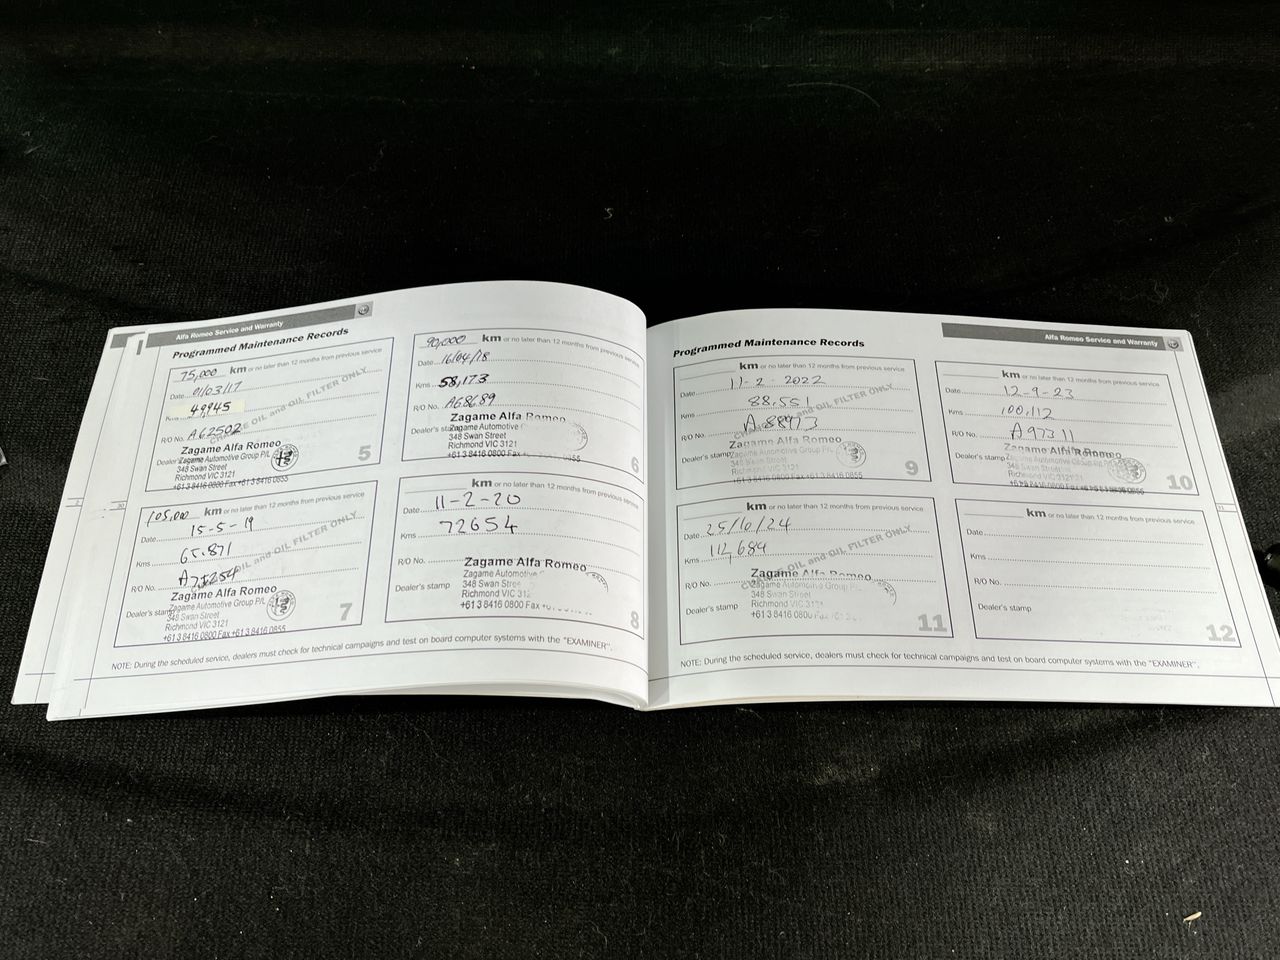 Alfa Romeo Service and Warranty
Programmed Maintenance Records
75,000 km or no later than 12 months from previous service
Date 01/03/17
Kms 49945
R/O No. A62502
CHANGE OIL and OIL FILTER ONLY
Dealer's stamp
Zagame Alfa Romeo
Zagame Automotive Group P/L
348 Swan Street
Richmond VIC 3121
+61 3 8416 0800 Fax +61 3 8416 0855
5
90,000 km or no later than 12 months from previous service
Date 16/04/18
Kms 58,173
R/O No. A68689
Dealer's stamp
Zagame Alfa Romeo
Zagame Automotive
348 Swan Street
Richmond VIC 3121
+61 3 8416 0800 Fax 0855
6
105,000 km or no later than 12 months from previous service
Date 15-5-19
Kms 65.871
R/O No.
OIL and OIL FILTER ONLY
Dealer's stamp
Zagame Alfa Romeo
Zagame Automotive Group P/L
348 Swan Street
Richmond VIC 3121
+61 3 8416 0800 Fax +61 3 8416 0855
7
km or no later than 12 months from previous service
Date 11-2-20
Kms 72654
R/O No.
Dealer's stamp
Zagame Alfa Romeo
Zagame Automotive
348 Swan Stree
Richmond VIC 312
+61 3 8416 0800 Fax
8
NOTE: During the scheduled service, dealers must check for technical campaigns and test on board computer systems with the "EXAMINER".
Alfa Romeo Service and Warranty
Programmed Maintenance Records
km or no later than 12 months from previous service
Date 11-2-2022
Kms 88,551
R/O No. A88973
CHANGE OIL and OIL FILTER ONLY
Dealer's stamp
Zagame Alfa Romeo
Zagame Automotive Group P/L
348 Swan Street
Richmond VIC 3121
+61 3 8416 0800 Fax +61 3 8416 0855
9
km or no later than 12 months from previous service
Date 12-9-23
Kms 100,112
R/O No. A97311
Dealer's stamp
Zagame Alfa Romeo
Zagame Automotive Group P/L
348 Swan Street
Richmond VIC 3121
10
km or no later than 12 months from previous service
Date 25/10/24
Kms 112,684
R/O No.
CHANGE OIL and OIL FILTER ONLY
Dealer's stamp
Zagame Alfa Romeo
Zagame Automotive Group P/L
348 Swan Street
Richmond VIC 312
+61 3 8416 080
11
km or no later than 12 months from previous service
Date
Kms
R/O No.
Dealer's stamp
12
NOTE: During the scheduled service, dealers must check for technical campaigns and test on board computer systems with the "EXAMINER".